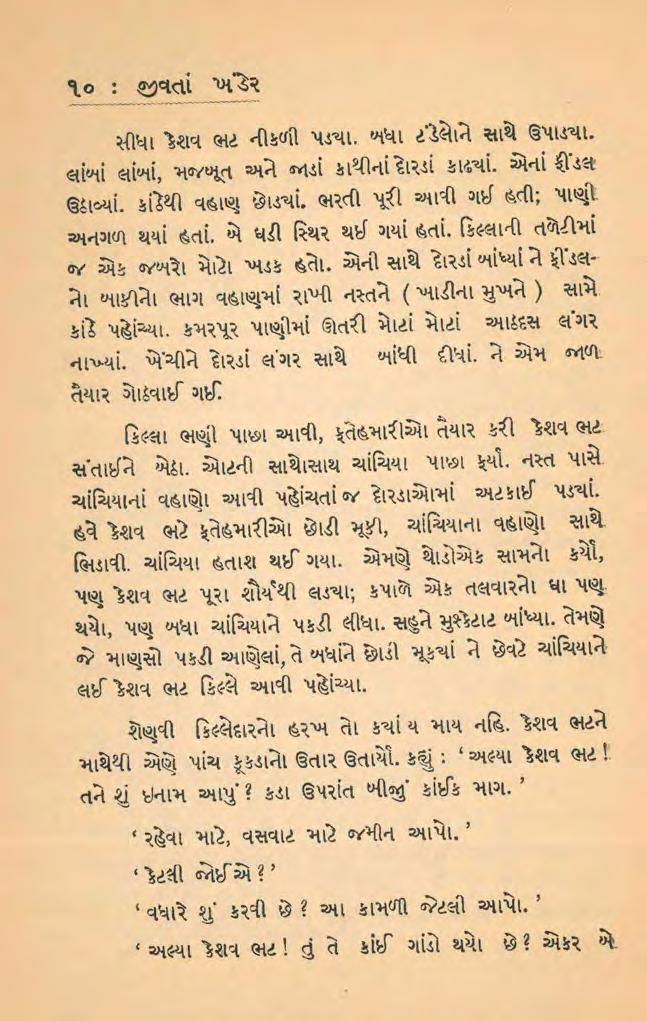 ૧૦ : જીવતાં ખંડેર
સીધા કેશવ ભટ નીકળી પડ્યા. બધા ટંડેલોને સાથે ઉપાડ્યા.
લાંબાં લાંબાં, મજબૂત અને જાડાં કાથીનાં દોરડાં કાઢ્યાં. એનાં ફીંડલ
ઉઠાવ્યાં. કાંઠેથી વહાણ છોડ્યાં. ભરતી પૂરી આવી ગઈ હતી; પાણી
અનગળ થયાં હતાં. બે ઘડી સ્થિર થઈ ગયાં હતાં. કિલ્લાની તળેટીમાં
જ એક જબરો મોટો ખડક હતો. એની સાથે દોરડાં બાંધ્યાં ને ફીંડલ-
નો બાકીનો ભાગ વહાણમાં રાખી નસ્તને ( ખાડીના મુખને ) સામે
કાંઠે પહોંચ્યા. કમરપૂર પાણીમાં ઊતરી મોટાં મોટાં આઠદસ લંગર
નાખ્યાં. ખેંચીને દોરડાં લંગર સાથે બાંધી દીધાં. ને એમ જાળ
તૈયાર ગોઠવાઈ ગઈ.
કિલ્લા ભણી પાછા આવી, ફતેહમારીઓ તૈયાર કરી કેશવ ભટ
સંતાઈને બેઠા. ઓટની સાથોસાથ ચાંચિયા પાછા ફર્યા. નસ્ત પાસે
ચાંચિયાનાં વહાણો આવી પહોંચતાં જ દોરડાઓમાં અટકાઈ પડ્યાં.
હવે કેશવ ભટે ફતેહમારીઓ છોડી મૂકી, ચાંચિયાના વહાણો સાથે
ભિડાવી. ચાંચિયા હતાશ થઈ ગયા. એમણે થોડોએક સામનો કર્યો,
પણ કેશવ ભટ પૂરા શૌર્યથી લડ્યા; કપાળે એક તલવારનો ઘા પણ
થયો, પણ બધા ચાંચિયાને પકડી લીધા. સહુને મુશ્કેટાટ બાંધ્યા. તેમણે
જે માણસો પકડી આણેલાં, તે બધાંને છોડી મૂક્યાં ને છેવટે ચાંચિયાને
લઈ કેશવ ભટ કિલ્લે આવી પહોંચ્યા.
શેણવી કિલ્લેદારનો હરખ તો ક્યાં ય માય નહિ. કેશવ ભટને
માથેથી એણે પાંચ કૂકડાનો ઉતાર ઉતાર્યો. કહ્યું : ‘ અલ્યા કેશવ ભટ !
તને શું ઇનામ આપું ? કડા ઉપરાંત બીજું કાંઈક માગ. ’
‘ રહેવા માટે, વસવાટ માટે જમીન આપો. ’
‘ કેટલી જોઈએ ? ’
‘ વધારે શું કરવી છે ? આ કામળી જેટલી આપો. ’
‘ અલ્યા કેશવ ભટ ! તું તે કાંઈ ગાંડો થયો છે ? એકર બે